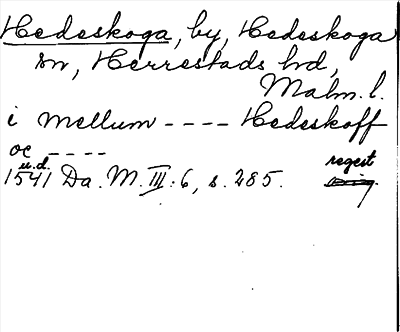 Hedeskoga, by, Hedeskoga
sn, Herrestads hd,
Malm. l.
i mellum ---- Hedeskoff
oc ----
u.d. regest
1541 Da. M. III. 6, s. 285.